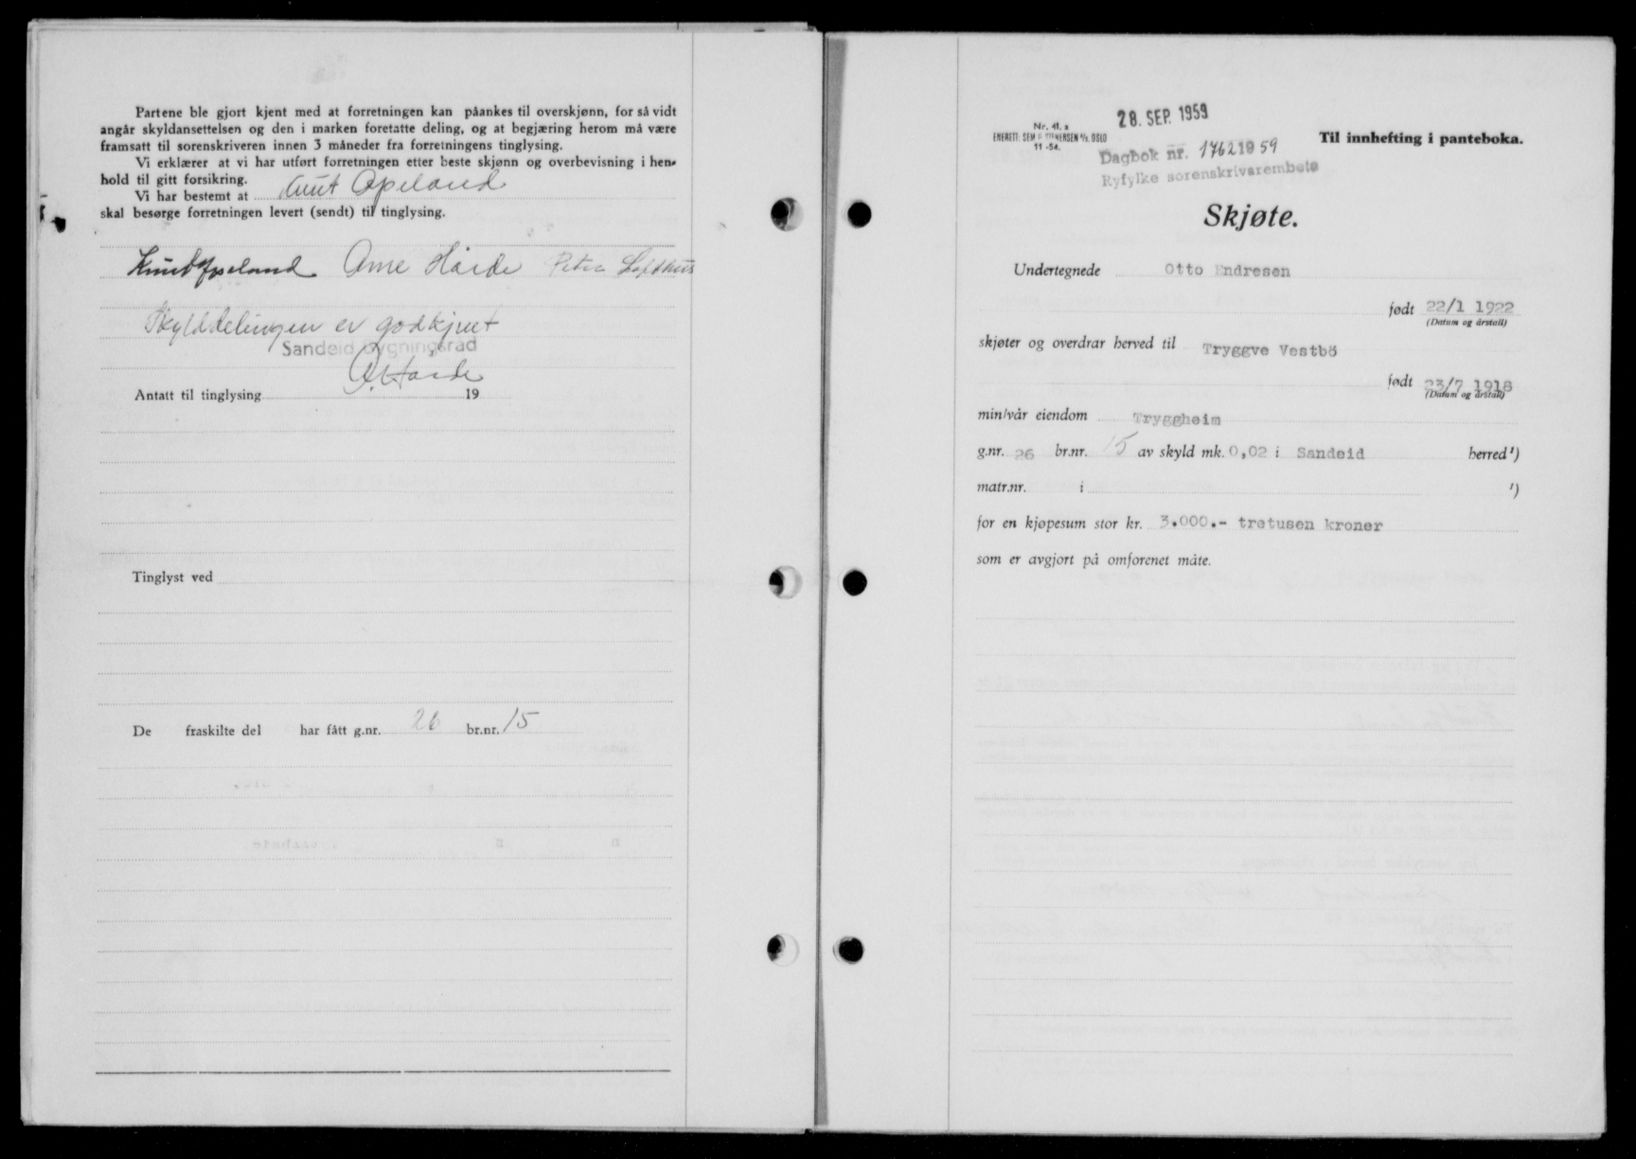 Partene ble gjort kjent med at forretningen kan påankes til overskjønn, for så vidt
angår skyldansettelsen og den i marken foretatte deling, og at begjæring herom må være
framsatt til sorenskriveren innen 3 måneder fra forretningens tinglysing.
Vi erklærer at vi har utført forretningen etter beste skjønn og overbevisning i hen-
hold til gitt forsikring.
Vi har bestemt at Knut Apeland
skal besørge forretningen levert (sendt) til tinglysing.
Knut Apeland Arne Hårde
Skylddelingen er godkjent
Sandeid bygningsråd
A. Hårde
Antatt til tinglysing 19
Tinglyst ved
De fraskilte del har fått g.nr. 26 br.nr. 15
28. SEP. 1959
Nr. 41. a
ENERETT: SEM & STENERSEN A/S. OSLO
11-54.
Til innhefting i panteboka.
Dagbok nr. 1762 1959
Ryfylke sorenskriverembete
Skjøte.
Undertegnede Otto Endresen
født 22/1 1922
(Datum og årstall)
skjøter og overdrar herved til Tryggve Vestbö
født 23/7 1918
(Datum og årstall)
min/vår eiendom Tryggheim
g.nr. 26 br.nr. 15 av skyld mk. 0,02 i Sandeid herred ¹)
matr.nr. i ¹)
for en kjøpesum stor kr. 3.000.- tretusen kroner
som er avgjort på omforenet måte.